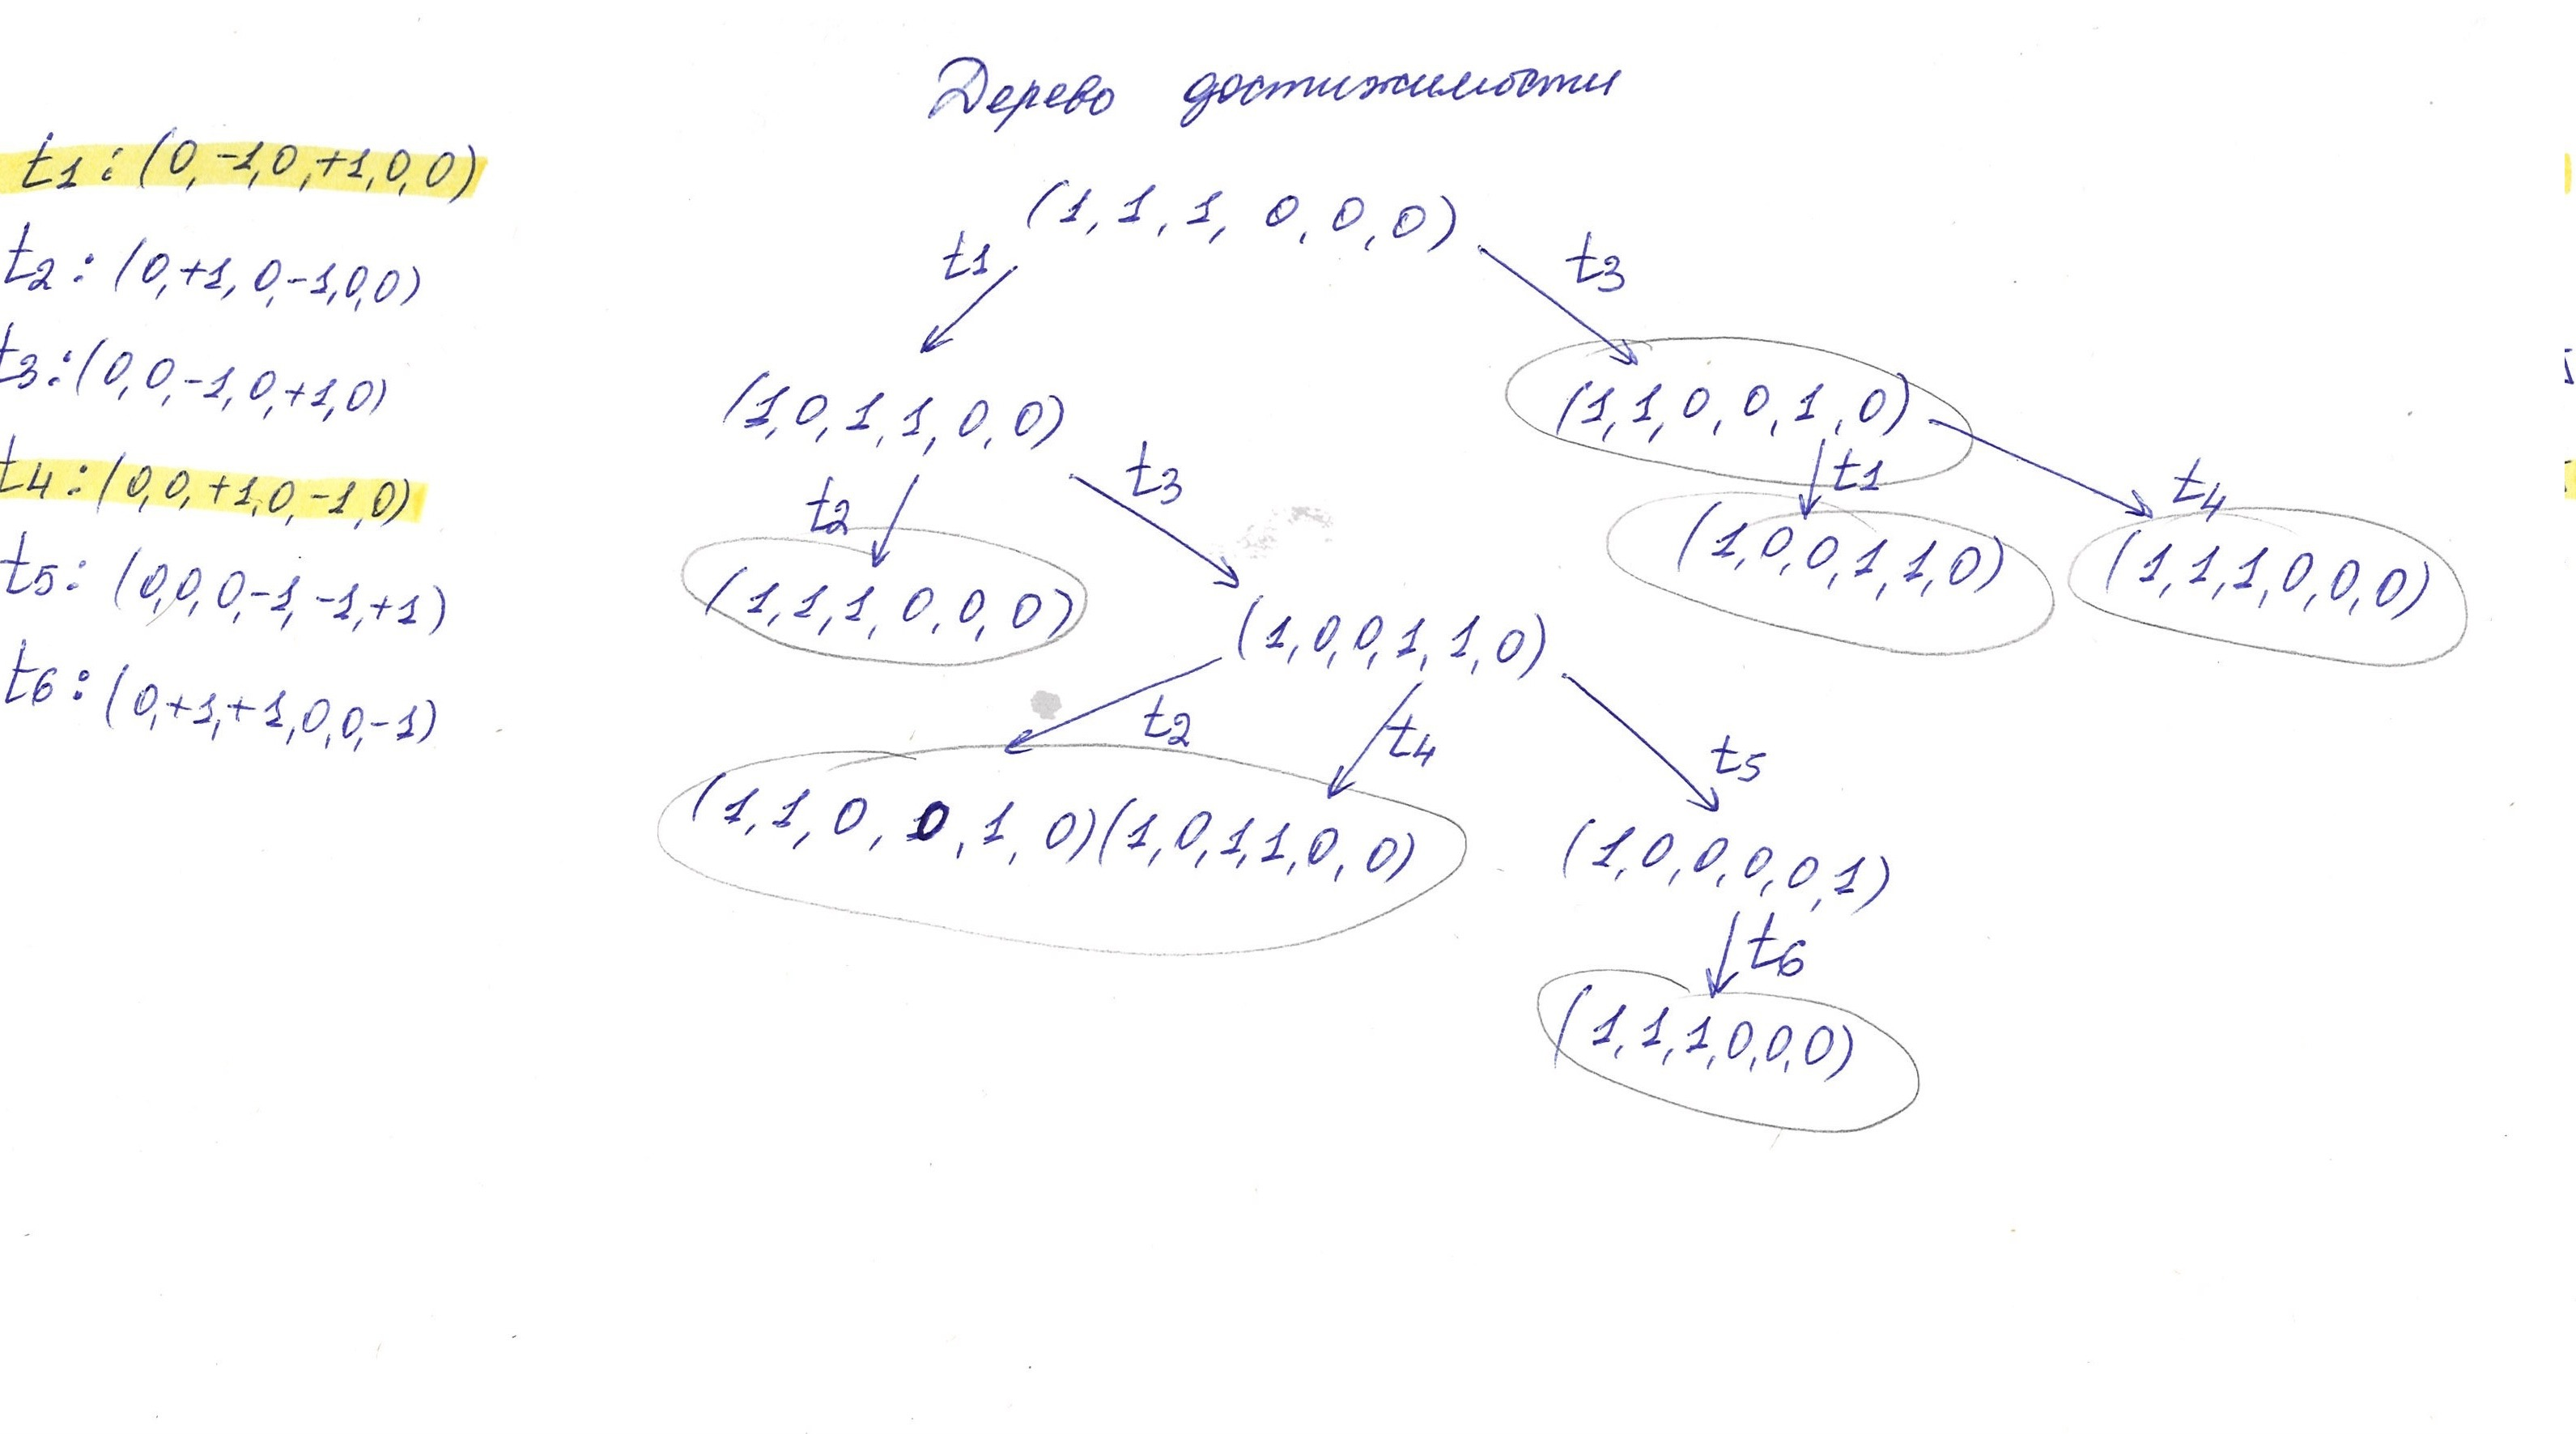 Дерево достижимости
t1: (0,-1,0,+1,0,0)
t2: (0,+1,0,-1,0,0)
t3: (0,0,-1,0,+1,0)
t4: (0,0,+1,0,-1,0)
t5: (0,0,0,-1,-1,+1)
t6: (0,+1,+1,0,0,-1)
(1,1,1,0,0,0)
t1 t3
(1,0,1,1,0,0) (1,1,0,0,1,0)
t2 t3 t1 t4
(1,1,1,0,0,0) (1,0,0,1,1,0) (1,0,0,1,1,0) (1,1,1,0,0,0)
t2 t4 t5
(1,1,0,0,1,0)(1,0,1,1,0,0) (1,0,0,0,0,1)
t6
(1,1,1,0,0,0)